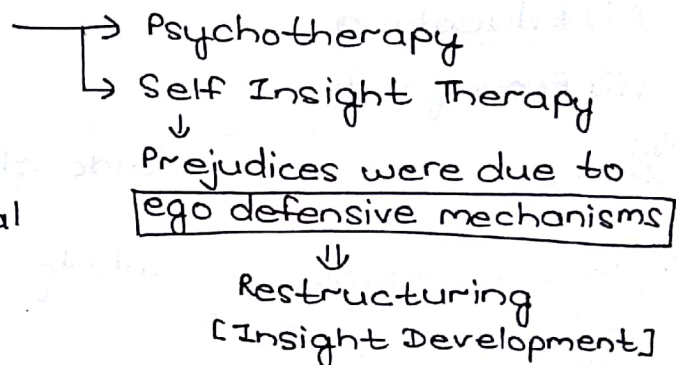 → Psychotherapy
↳ Self Insight Therapy
↓
Prejudices were due to
al ego defensive mechanisms
⇓
Restructuring
[Insight Development]